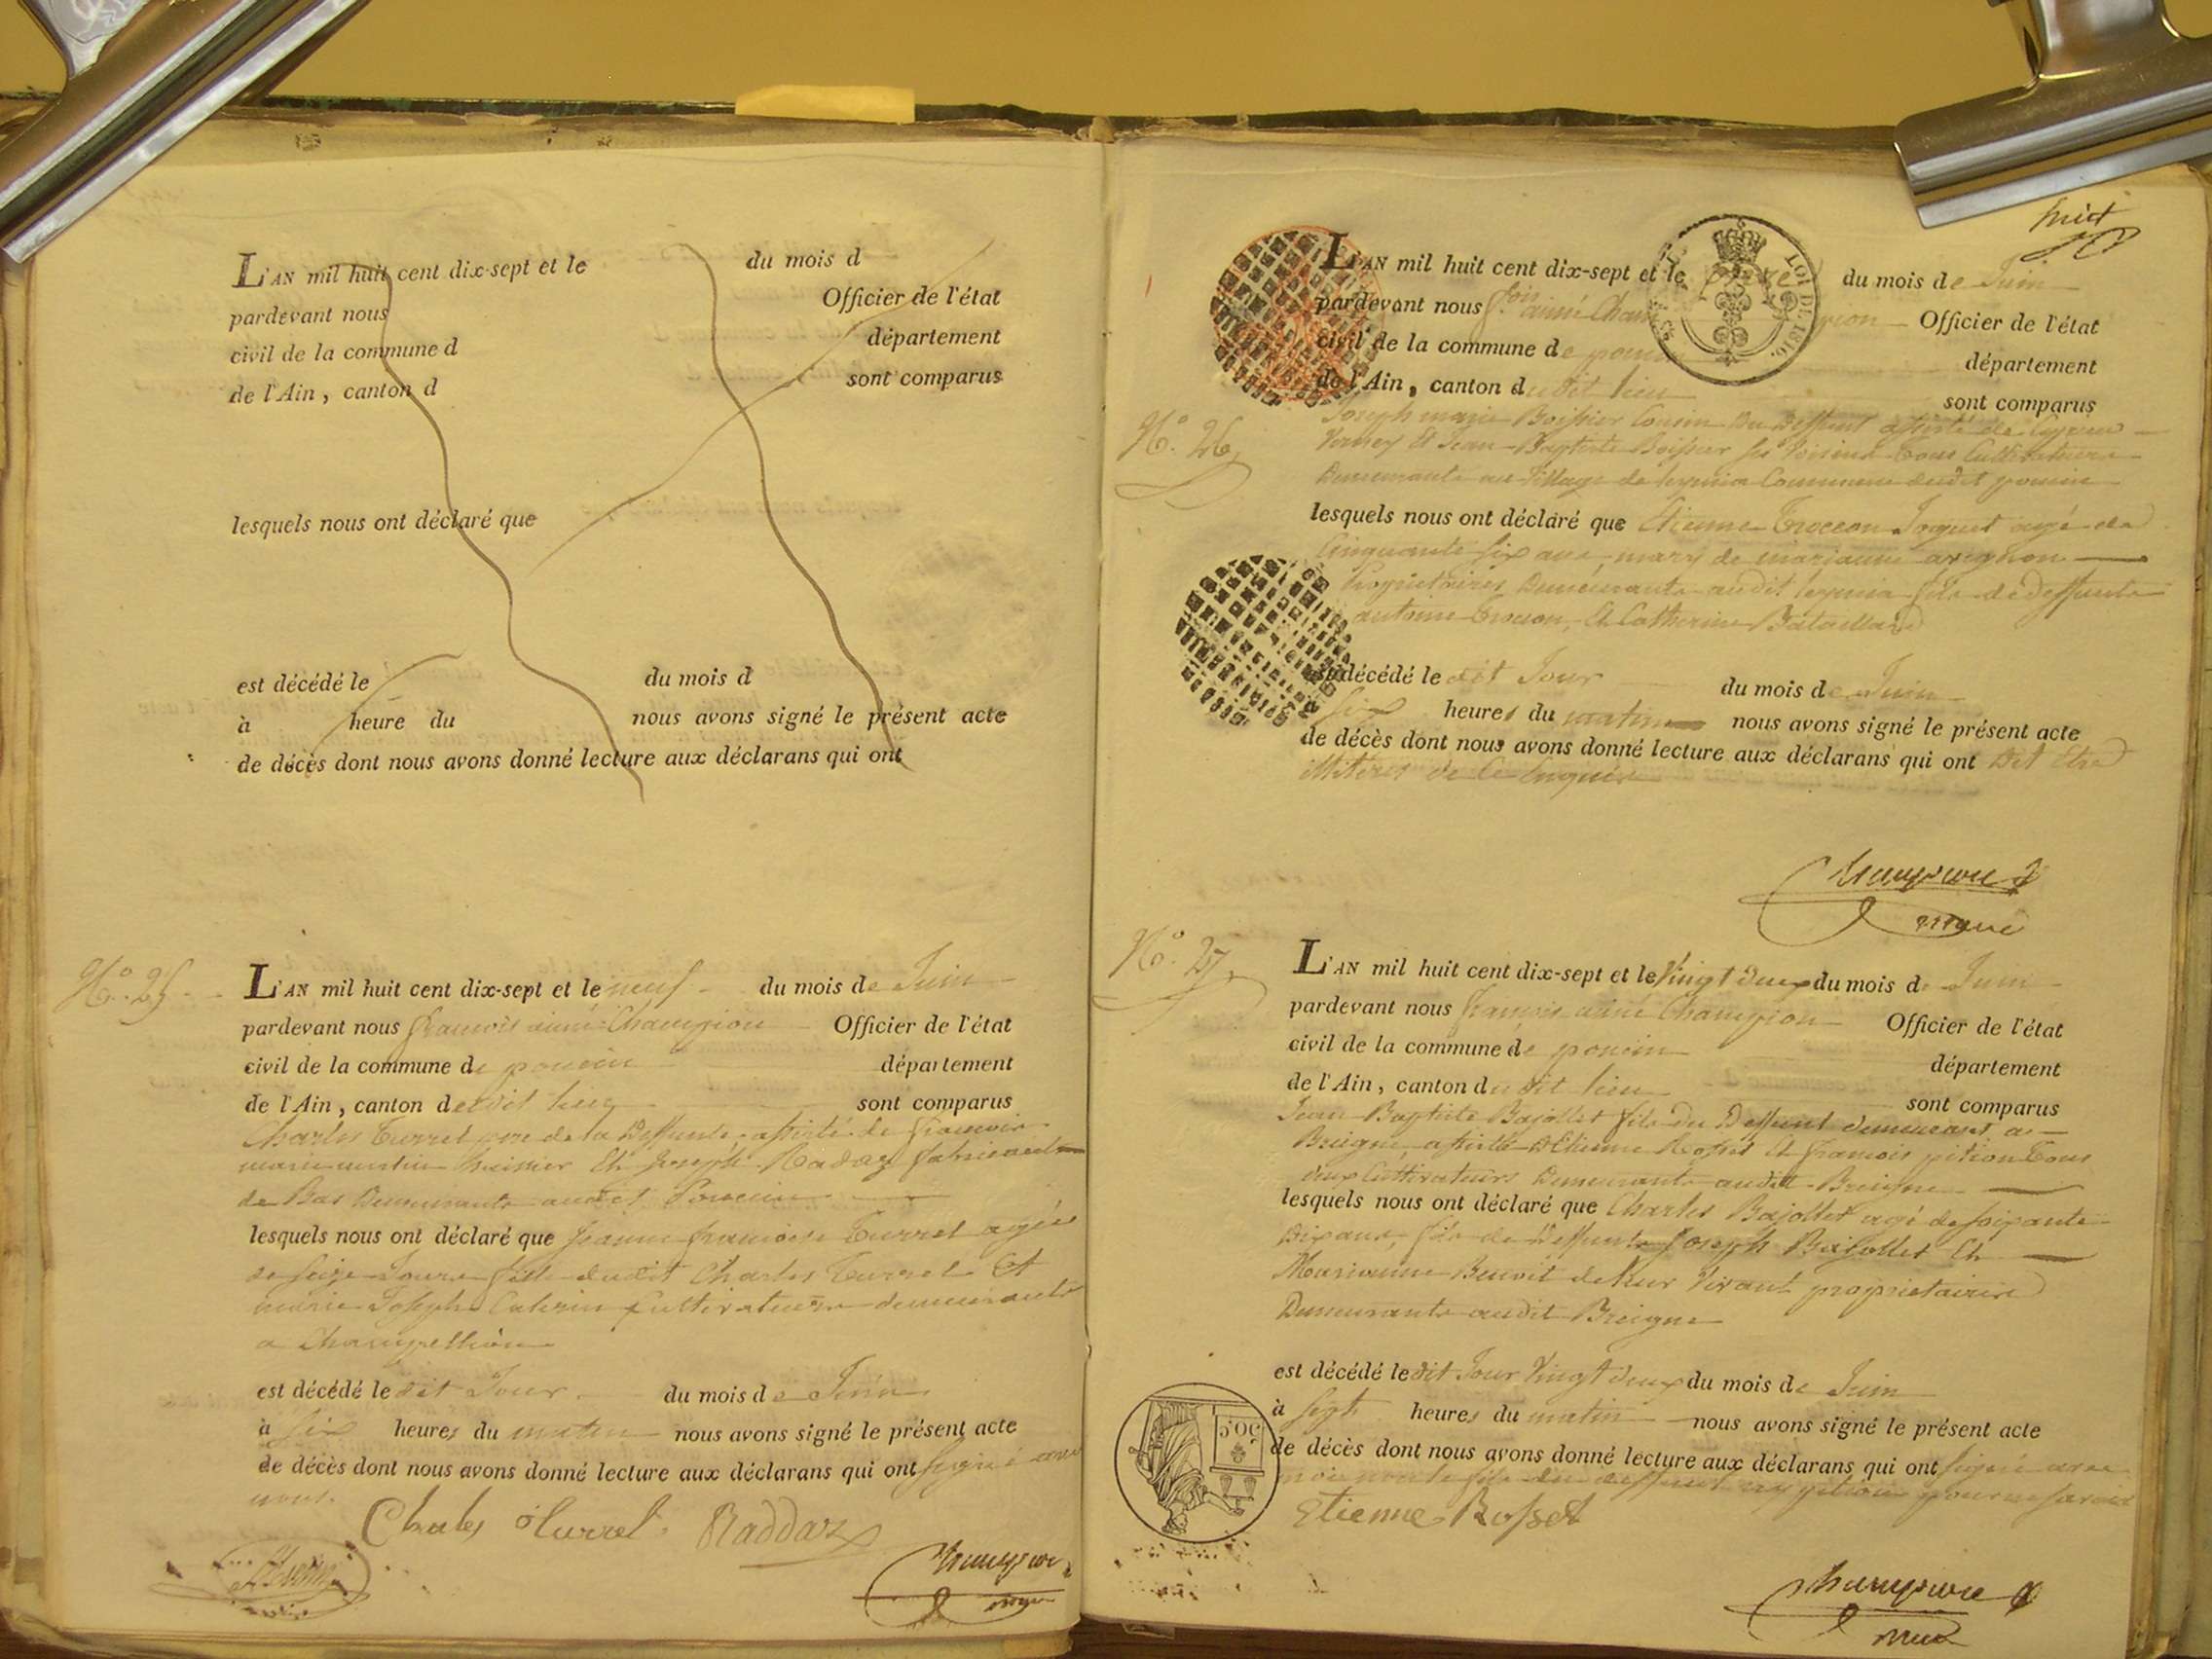 L'AN mil huit cent dix-sept et le du mois d
pardevant nous Officier de l'état
civil de la commune d département
de l'Ain, canton d sont comparus
lesquels nous ont déclaré que
est décédé le du mois d
à heure du nous avons signé le présent acte
de décès dont nous avons donné lecture aux déclarans qui ont
N.o 25
L'AN mil huit cent dix-sept et le neuf du mois de Juin
pardevant nous françois aimé Champion Officier de l'état
civil de la commune de poncin département
de l'Ain, canton dudit lieu sont comparus
Charles Turrel pere de la Deffunte, assisté de françois
marie Et Joseph Radaz fabricants
de Bas Demeurants audit Poncin
lesquels nous ont déclaré que Jeanne françoise Turrel agée
de seize Jours fille dudit Charles Turrel Et
marie Joseph Cultivateurs demeurants
a Champellion
est décédé le dit Jour du mois de Juin
à six heures du matin nous avons signé le présent acte
de décès dont nous avons donné lecture aux déclarans qui ont signé avec
nous.
Charles turrel Raddaz
Champion
maire
huit
LOI DE 1816.
L'AN mil huit cent dix-sept et le onze du mois de Juin
pardevant nous f.ois aimé Champion Officier de l'état
civil de la commune de poncin département
de l'Ain, canton dudit lieu sont comparus
N.o 26
Joseph marie Boissier Cousin Du Deffunt assisté de
Verney Et Jean-Baptiste Boissier ses Voisins Tous Cultivateurs
Demeurants au Village de leymia Commune dudit poncin
lesquels nous ont déclaré que Etienne Trocon Joquet agé de
Cinquante six ans, mary de marianne avignon
Proprietaires Demeurants audit leymia fils de Deffunts
antoine Trocon, Et Catherine Bataillard
est décédé le dit Jour du mois de Juin
six heures du matin nous avons signé le présent acte
de décès dont nous avons donné lecture aux déclarans qui ont Dit Etre
illitérés de ce Enquis
Champion
maire
N.o 27
L'AN mil huit cent dix-sept et le Vingt deux du mois de Juin
pardevant nous françois aimé Champion Officier de l'état
civil de la commune de poncin département
de l'Ain, canton dudit lieu sont comparus
Jean-Baptiste Bajollet fils Du Deffunt demeurant a
Breigne, assisté D'Etienne Rosset Et francois pition Tous
deux Cultivateurs Demeurants audit Breigne
lesquels nous ont déclaré que Charles Bajollet agé de soixante
Dix ans, fils de Deffunts Joseph Bajollet Et
Marianne Benoit de leur Vivant proprietaires
Demeurants audit Breigne
est décédé le dit Jour Vingt deux du mois de Juin
à sept heures du matin nous avons signé le présent acte
5oC
de décès dont nous avons donné lecture aux déclarans qui ont signé avec
nous non le fils du deffunt ny pition pour ne savoir
Etienne Rosset
Champion
maire